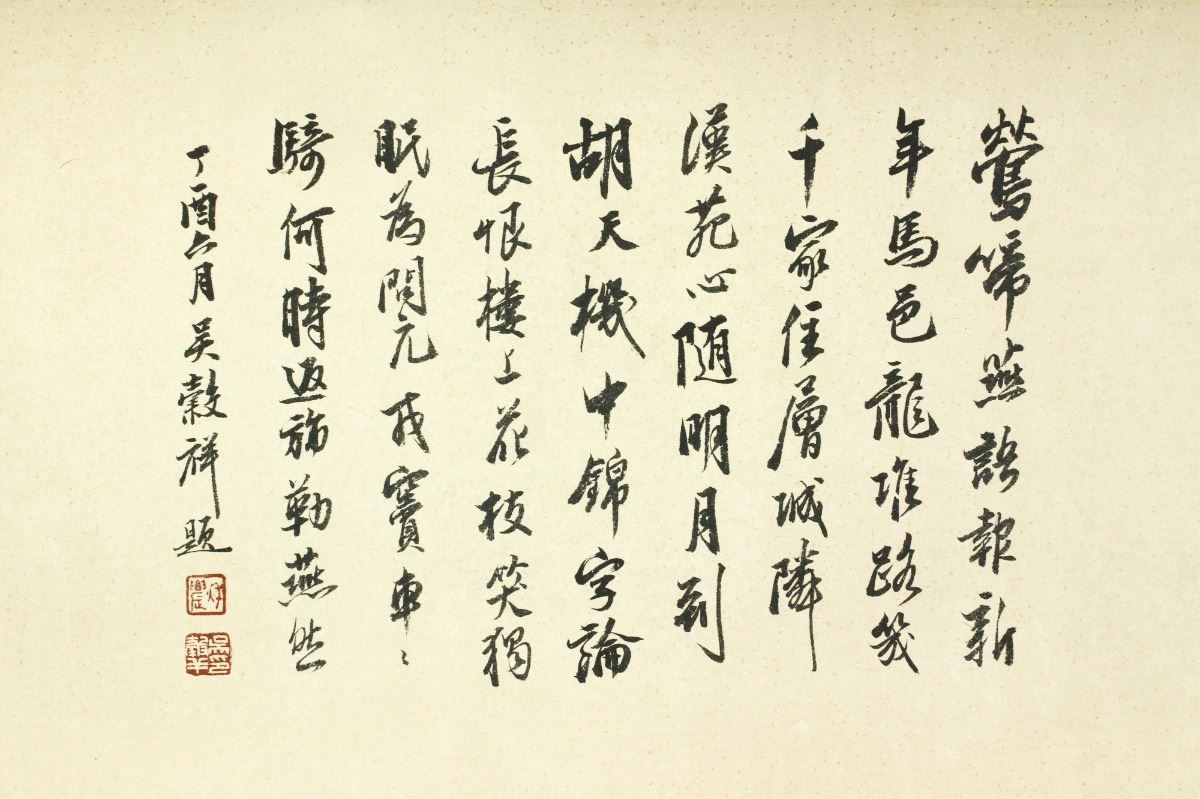 鶯啼燕語報新
年馬邑龍堆路幾
千家住層城隣
漢苑心隨明月到
胡天機中錦字論
長恨樓上花枝笑獨
眠為問元戎竇車〻
騎何時返旆勒燕然
丁酉六月吳穀祥題
秋農
吳印穀祥